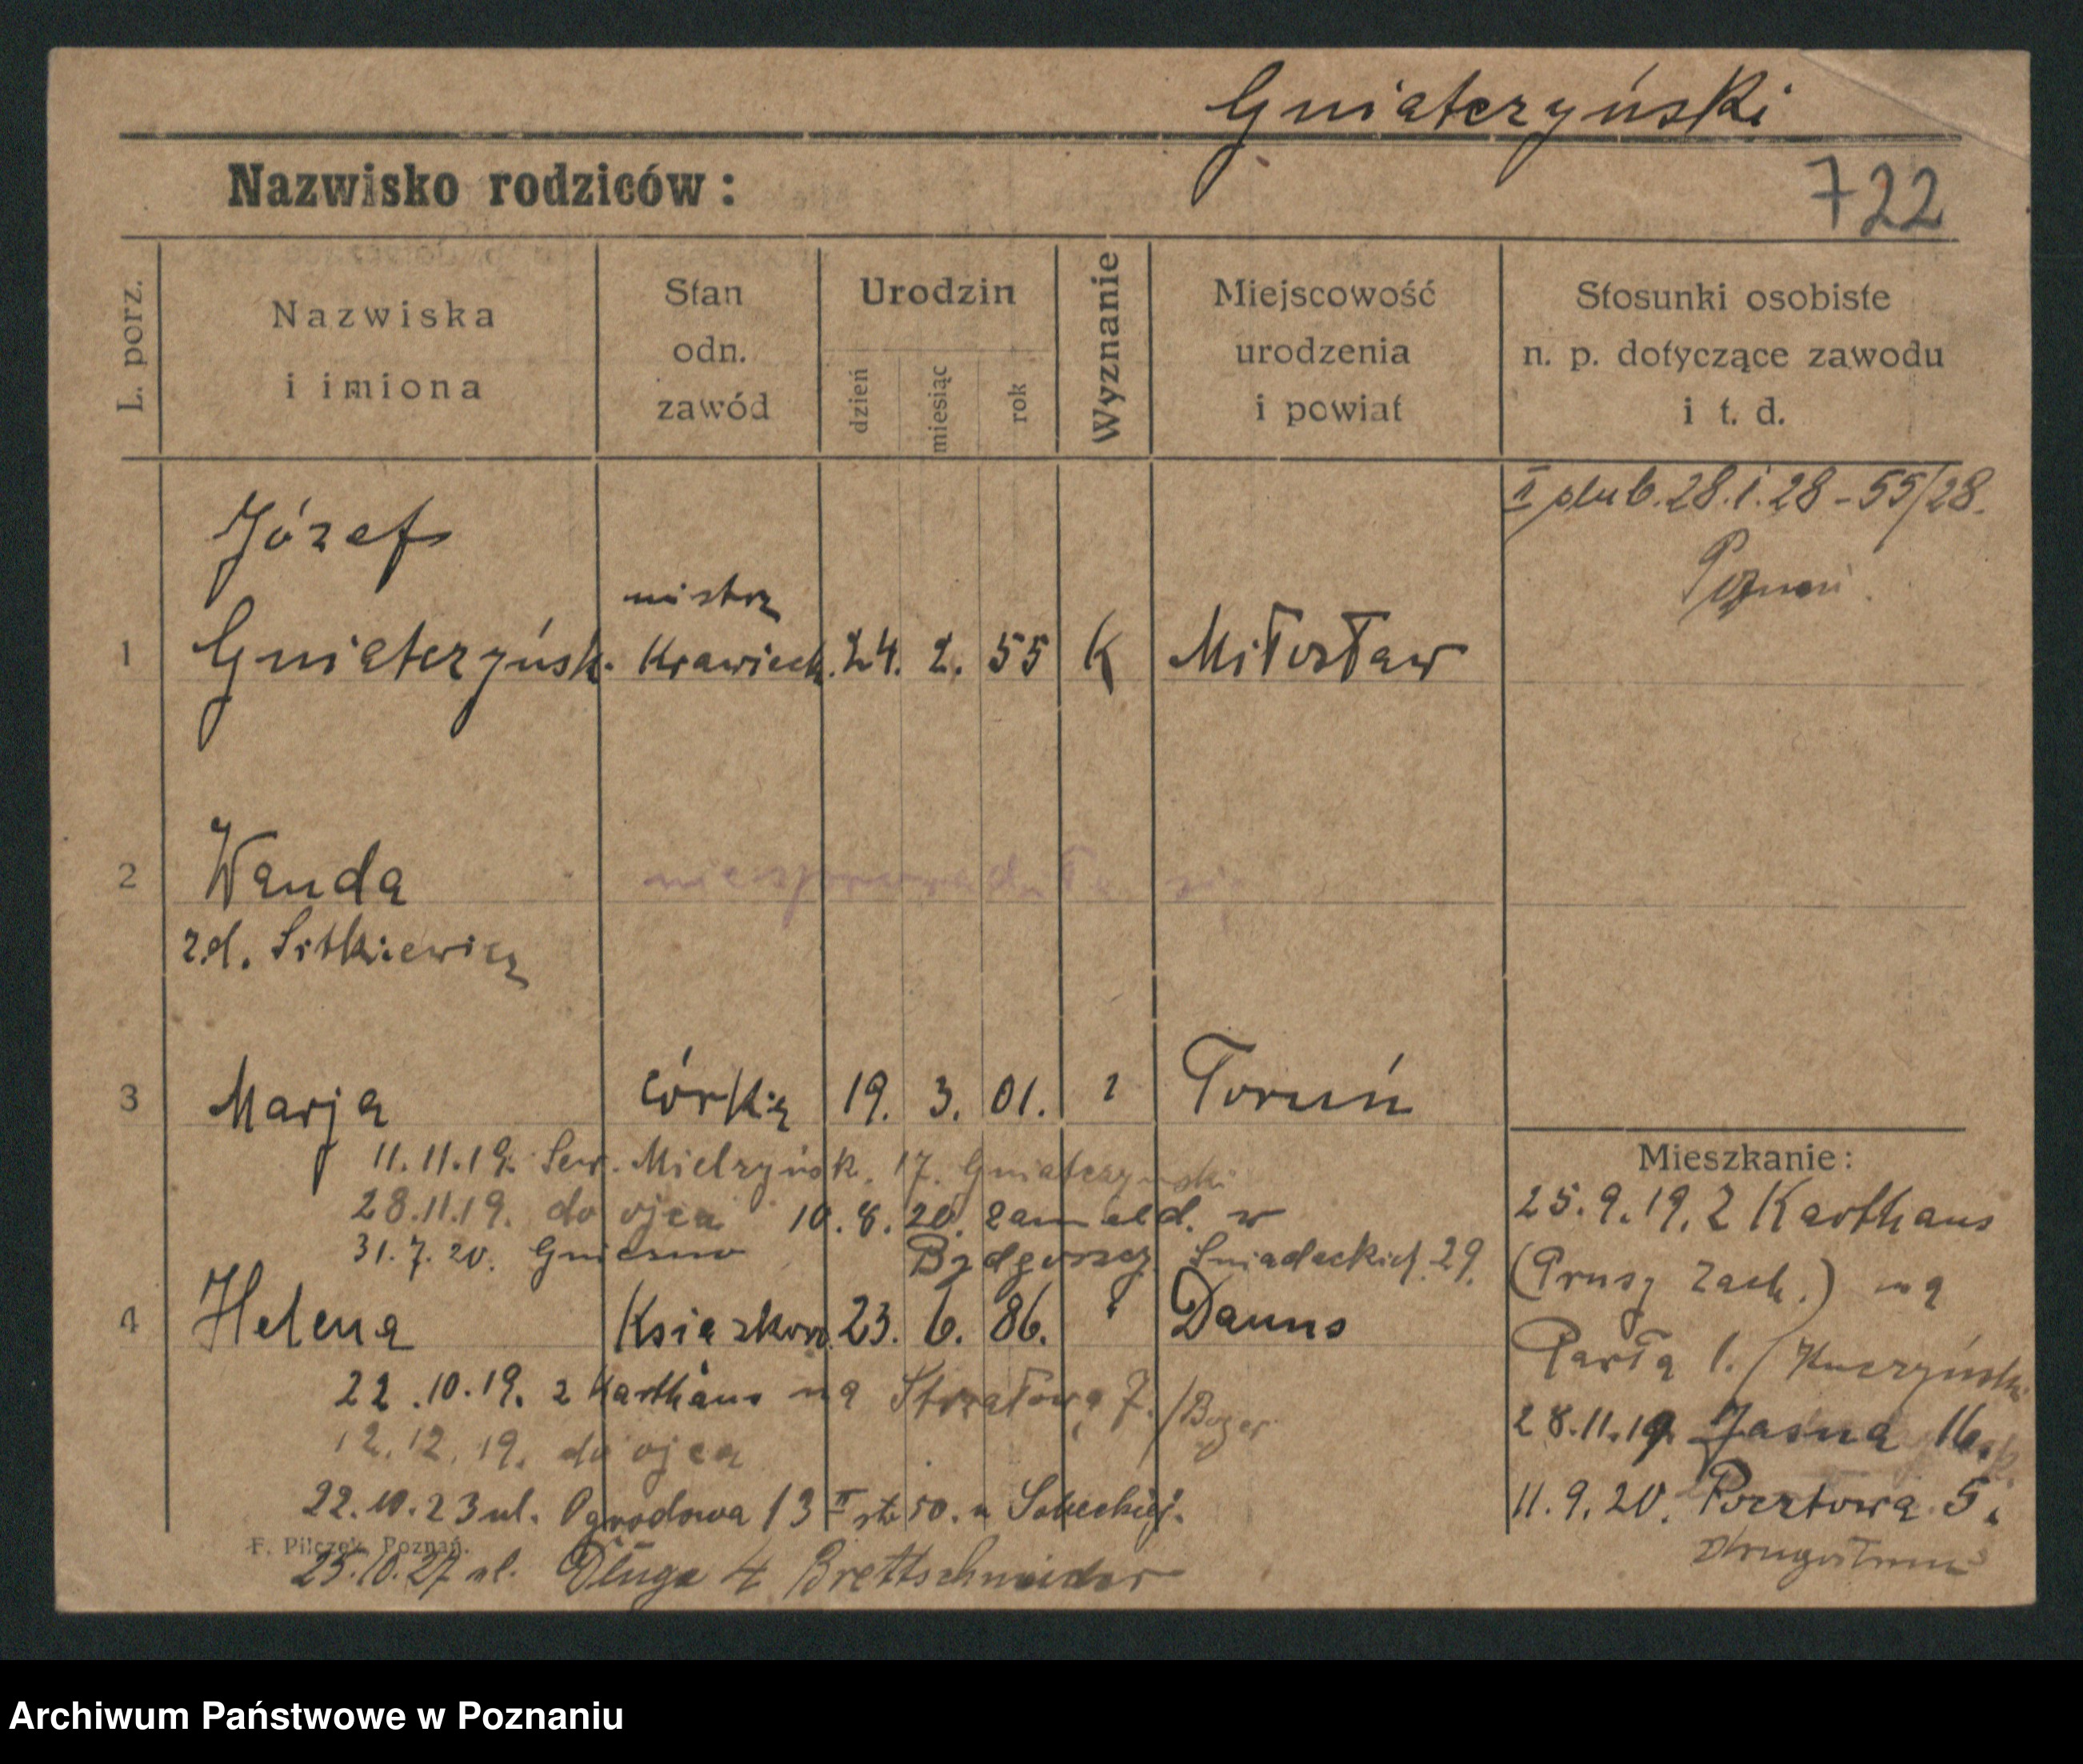 Gniaterzyński
Nazwisko rodziców:
722
L. porz.
Nazwiska
i imiona
Stan
odn.
zawód
Urodzin
dzień
miesiąc
rok
Wyznanie
Miejscowość
urodzenia
i powiat
Stosunki osobiste
n. p. dotyczące zawodu
i t. d.
II ślub. 28.I.28 - 55/28.
Poznań.
Józef
mistrz
1 Gniaterzyńsk. Krawieck. 24. 2. 55 K Miłosław
2 Wanda nie sprowadziła się
zd. Sitkiewicz
3 Marja córka 19. 3. 01. " Toruń
11.11.19. Sew. Mielzyńsk. 17. Gniaterzyński
28.11.19. do ojca 10.8.20. zameld. w
31.7.20. Gniezno Bydgoszcz Śniadeckich 29.
4 Helena Książkow. 23. 6. 86. " Danns
22.10.19. z Karthaus na Strzałową 7./
12.12.19. do ojca
22.10.23 ul. Ogrodowa 13 II u Sobeckiej.
F. Pilczek, Poznań.
25.10.27 ul. Długa 4 Brettschneider
Mieszkanie:
25.9.19. z Karthaus
(Prusy Zach.) na
1. (Kuczyńsk.
28.11.19. Jasna 16.
11.9.20. Pocztowa 5.
Archiwum Państwowe w Poznaniu